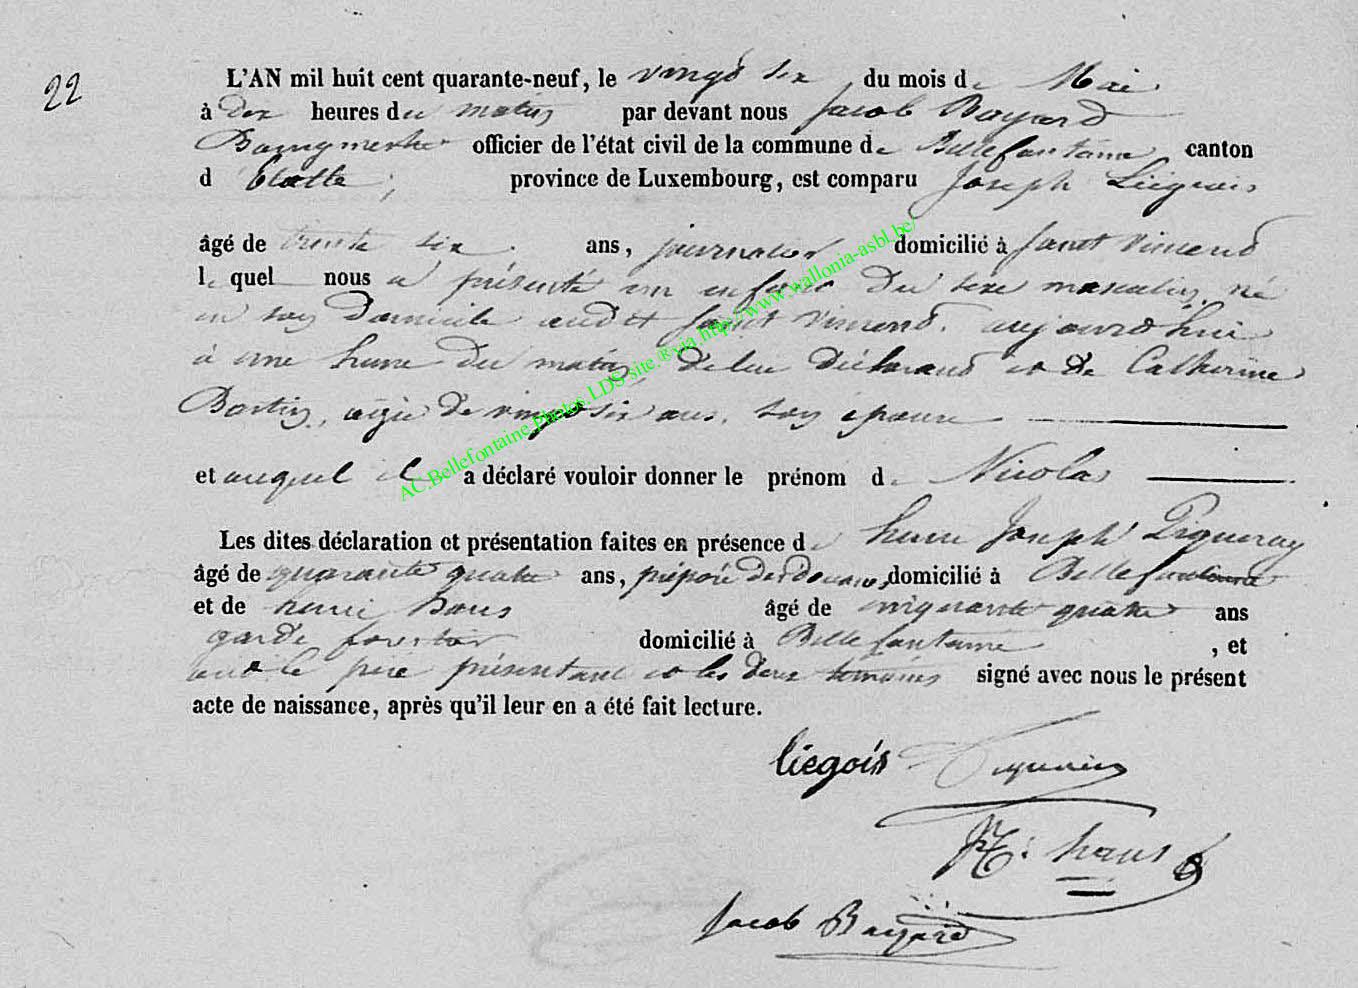 22
L'AN mil huit cent quarante-neuf, le vingt six du mois de Mai
à dix heures du matin par devant nous Jacob Bayard
Bourgmestre officier de l'état civil de la commune de Bellefontaine canton
d' Etalle, province de Luxembourg, est comparu Joseph Liégeois
âgé de trente six ans, journalier domicilié à Saint Vincent
lequel nous a présenté un enfant du sexe masculin, né
en son domicile audit Saint Vincent aujourd'hui
à une heure du matin, de lui déclarant et de Catherine
agée de vingt six ans, son épouse
et auquel il a déclaré vouloir donner le prénom de Nicolas
Les dites déclaration et présentation faites en présence de henri Joseph Piqueray
âgé de quarante quatre ans, préposé des Douanes, domicilié à Bellefontaine
et de henri âgé de cinquante quatre ans
garde forestier domicilié à Bellefontaine, et
ont le père présentant et les deux témoins signé avec nous le présent
acte de naissance, après qu'il leur en a été fait lecture.
liegois
haus
Jacob Bayard
AC.Bellefontaine.Photos.LDS site.®via.http://www.wallonia-asbl.be/